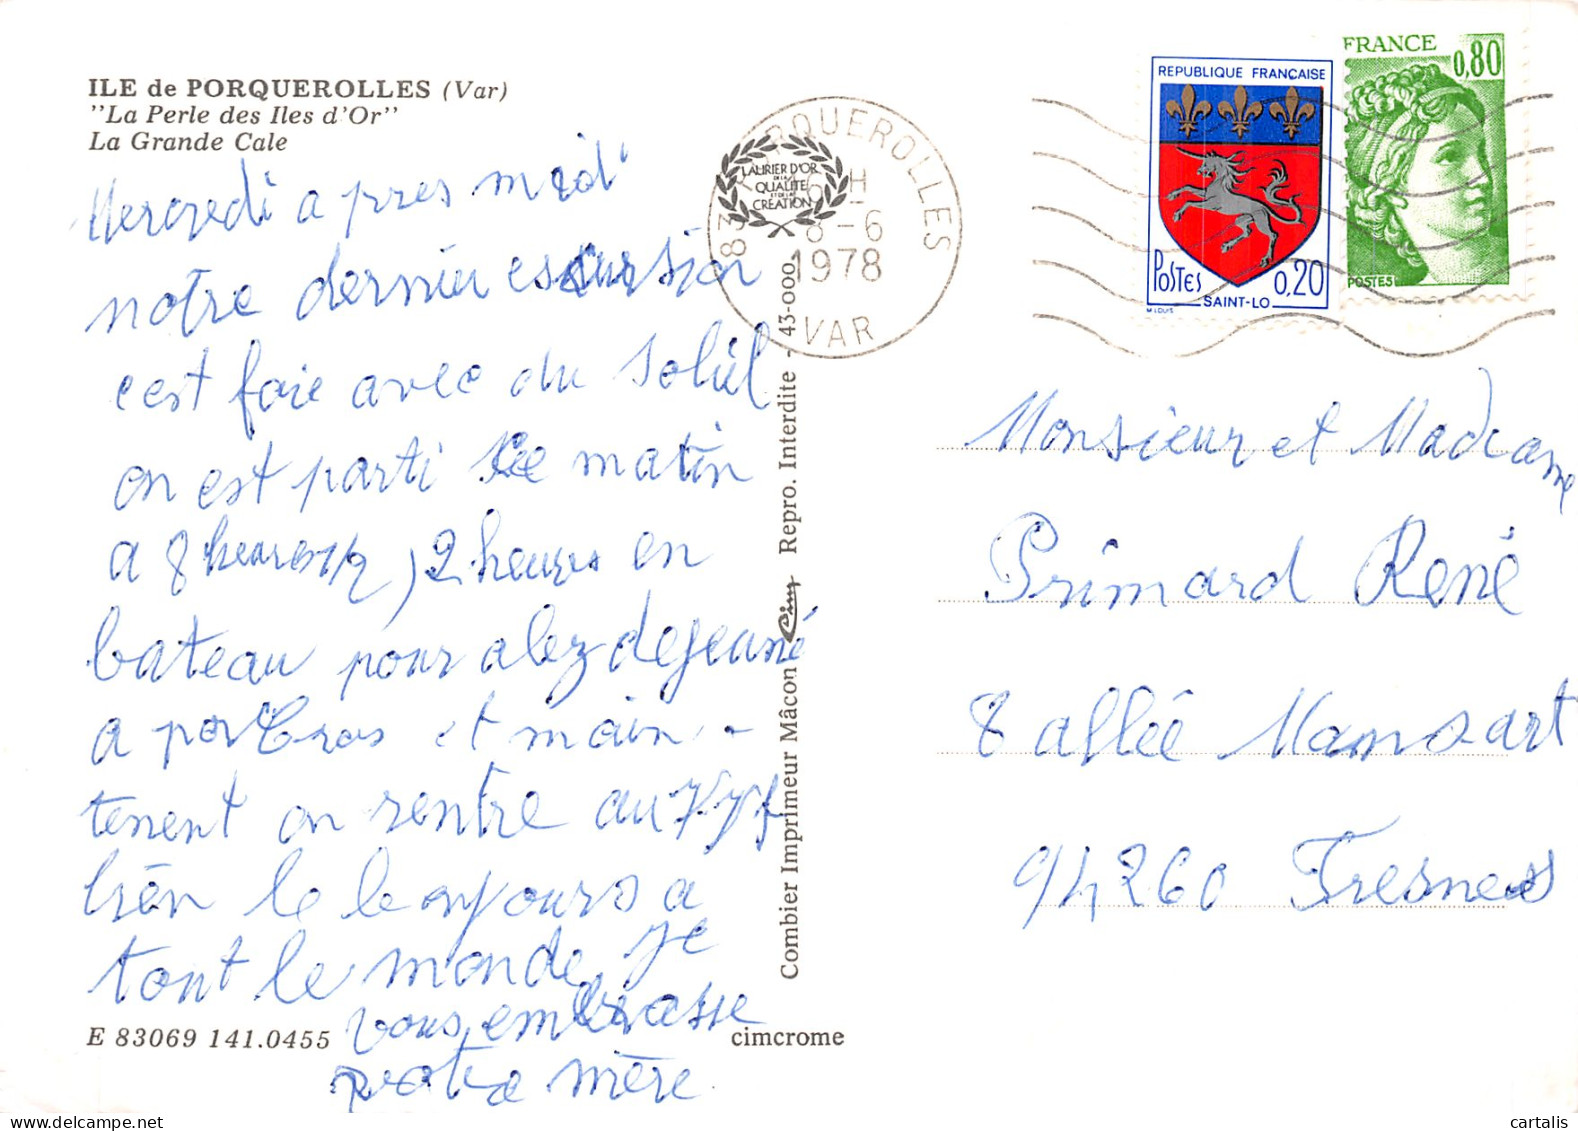 ILE de PORQUEROLLES (Var)
"La Perle des Iles d'Or"
La Grande Cale
Mercredi a pres midi
notre dernier escursion
cest faie avec du soleil
on est parti le matin
a 8 heures1/2, 2 heures en
bateau pour alez dejeuné
a port Cros et main-
tenent on rentre au
bien le bonjours a
tout le monde, je
vous embrasse
votre mère
E 83069 141.0455
cimcrome
Combier Imprimeur Mâcon Cim Repro. Interdite - 43-000
LAURIER D'OR
DE LA
QUALITÉ
ET DE LA
CRÉATION
83 PORQUEROLLES
H
8-6
1978
VAR
REPUBLIQUE FRANÇAISE
POSTES
0,20
SAINT-LO
M LOUIS
FRANCE
0,80
POSTES
Monsieur et Madame
Primard René
8 allée Mansart
94260 Fresnes
www.delcampe.net
cartalis